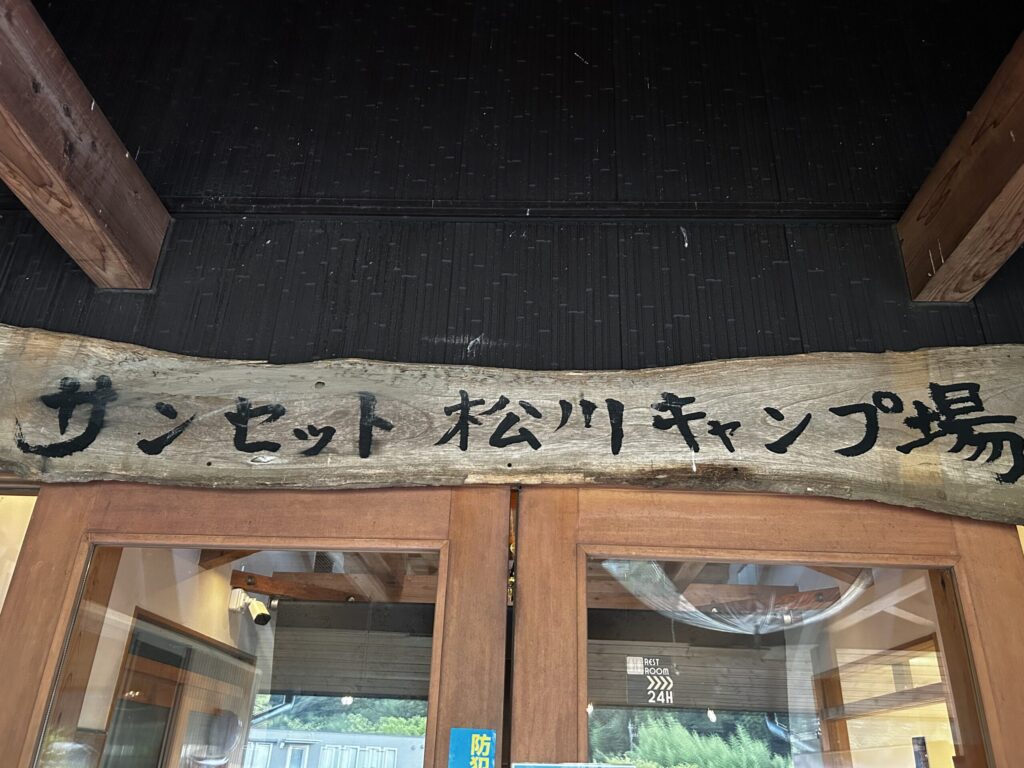 サンセット 松川 キャンプ場
REST
ROOM
24H
防犯